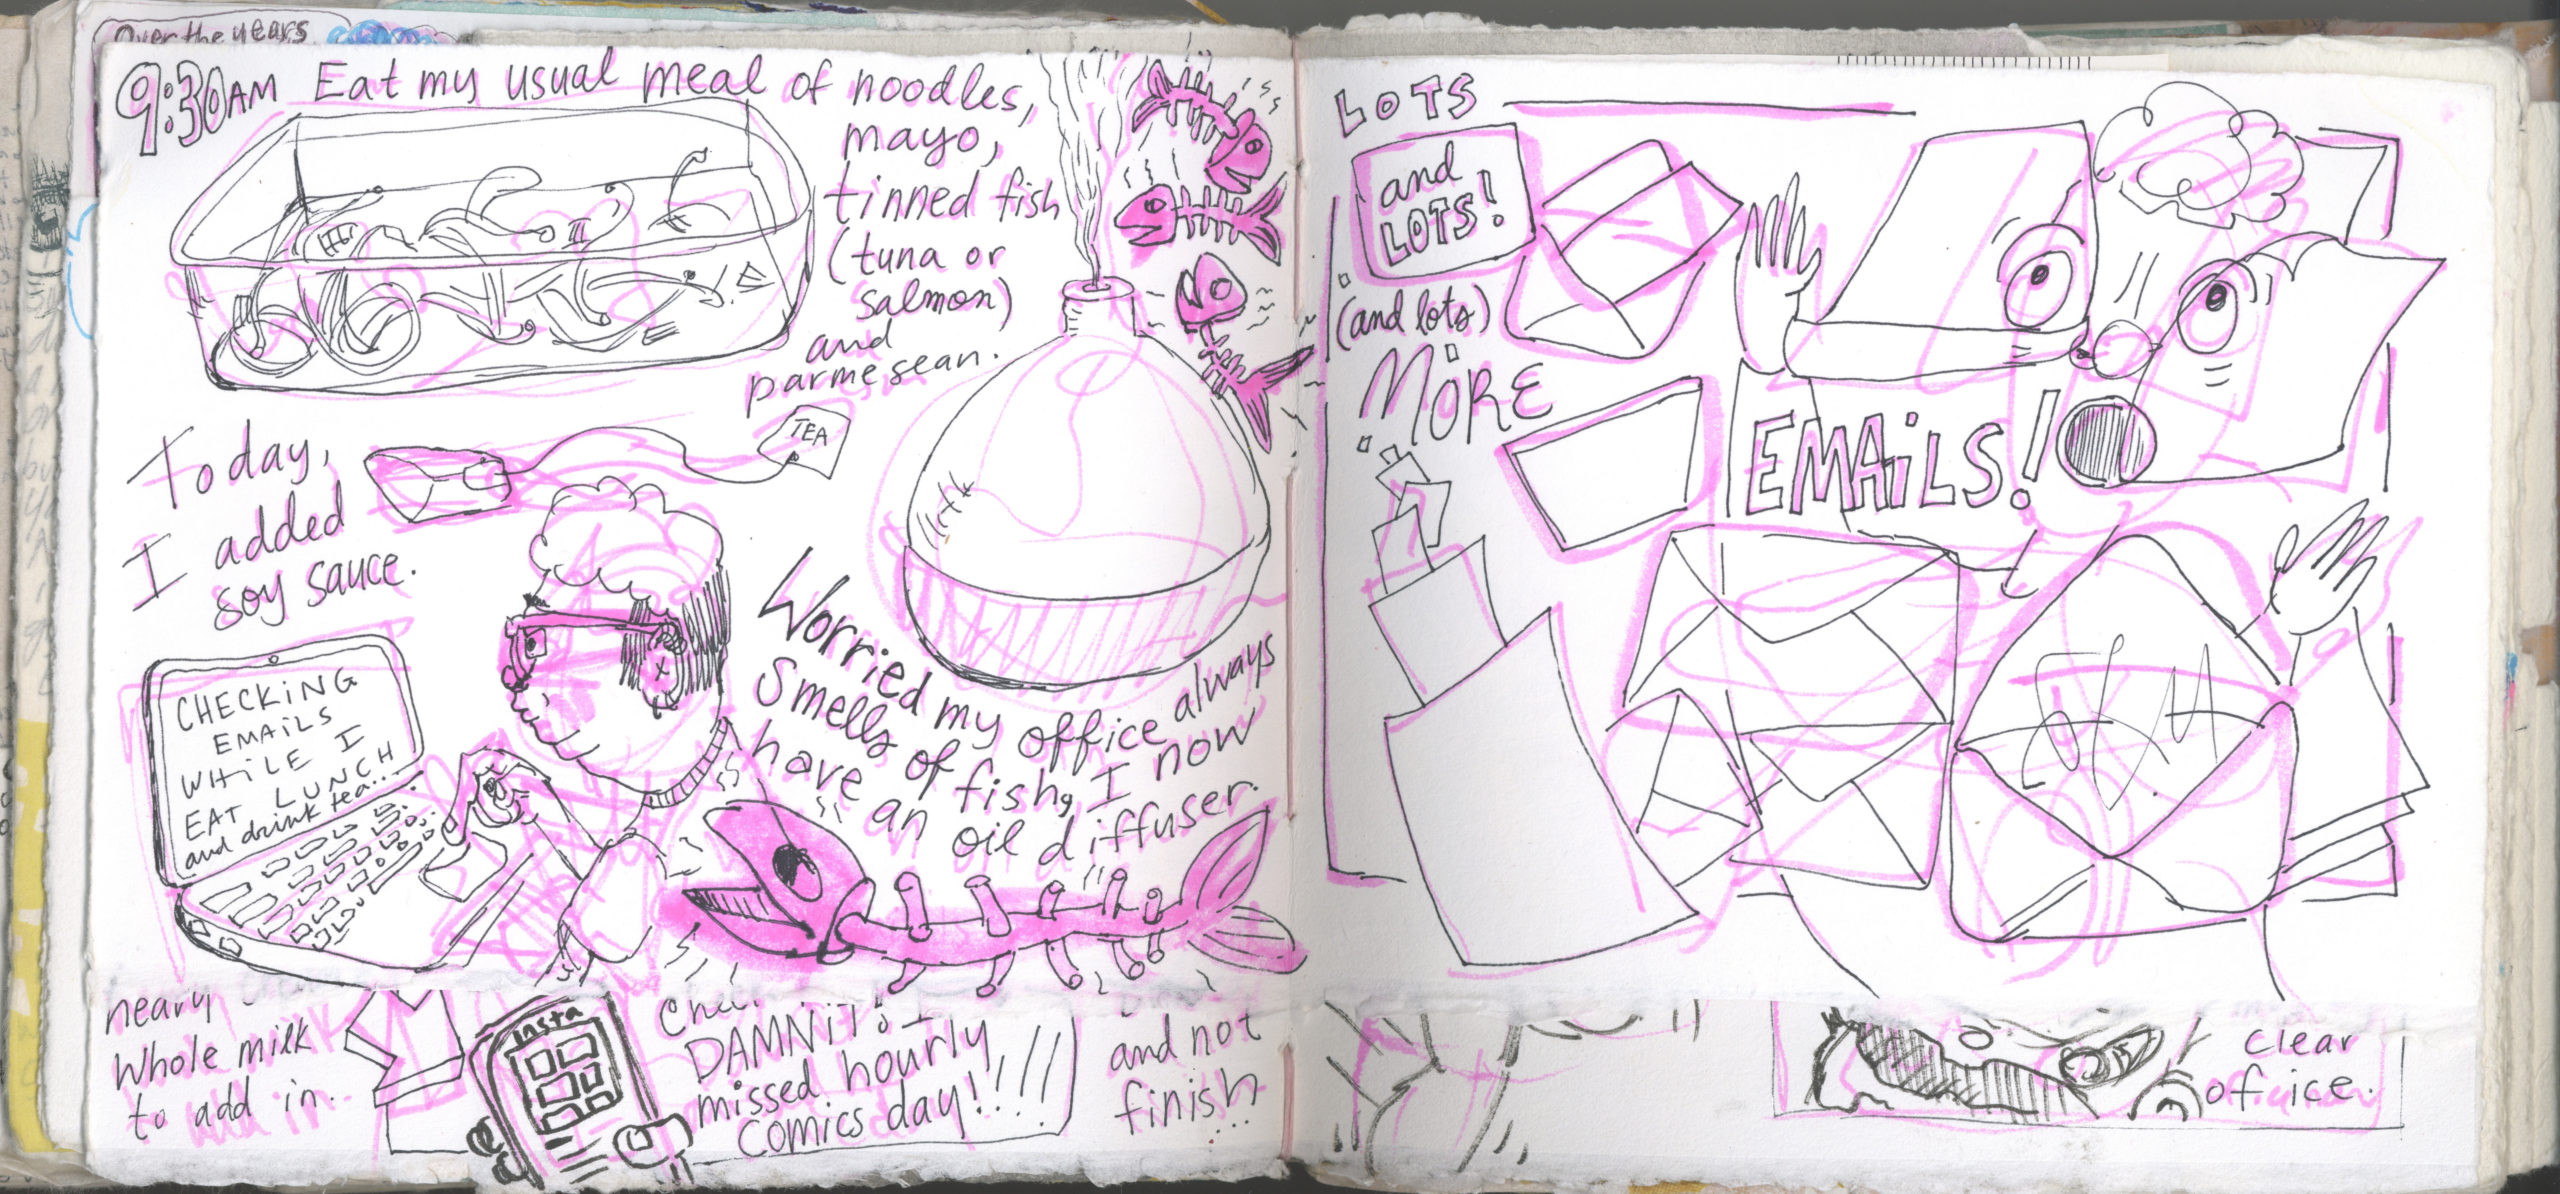 Over the years
9:30AM Eat my usual meal of noodles,
mayo,
tinned fish
(tuna or
salmon)
and
parmesean.
TEA
Today,
I added
soy sauce.
CHECKING
EMAILS
WHILE I
EAT LUNCH
and drink tea...
Worried my office always
smells of fish, I now
have an oil diffuser.
whole milk
to add in.
Insta
DAMNIT! I
missed hourly
comics day!!!!!
and not
finish...
LOTS
and
LOTS!
(and lots)
MORE
EMAILS!
clear
office.